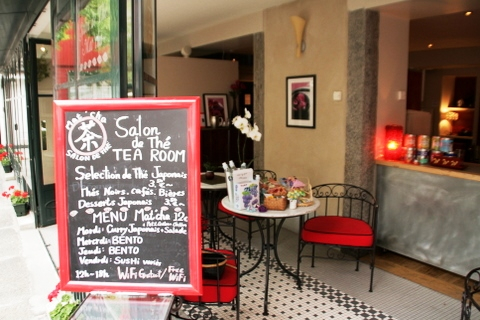 茶
SALON DE THÉ
Salon
de Thé
TEA ROOM
Selection de Thé Japonais
3,€~
Thés Noirs, Cafés, Bières
Desserts Japonais 3€~
MENU Matcha 12€
Mardi: Curry Japonais + Salade
Mercredi: BENTO
Jeudi: BENTO
Vendredi: SUSHI variés
12h-18h WiFi Gratuit/ Free
WiFi